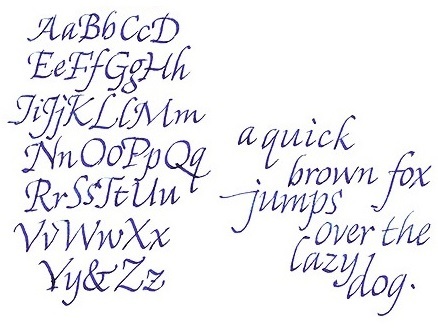 AaBbCcD
EeFfGgHh
IiJjKLlMm
NnOoPpQq
RrSsTtUu
VvWwXx
Yy&Zz
a quick
brown fox
jumps
over the
lazy
dog.